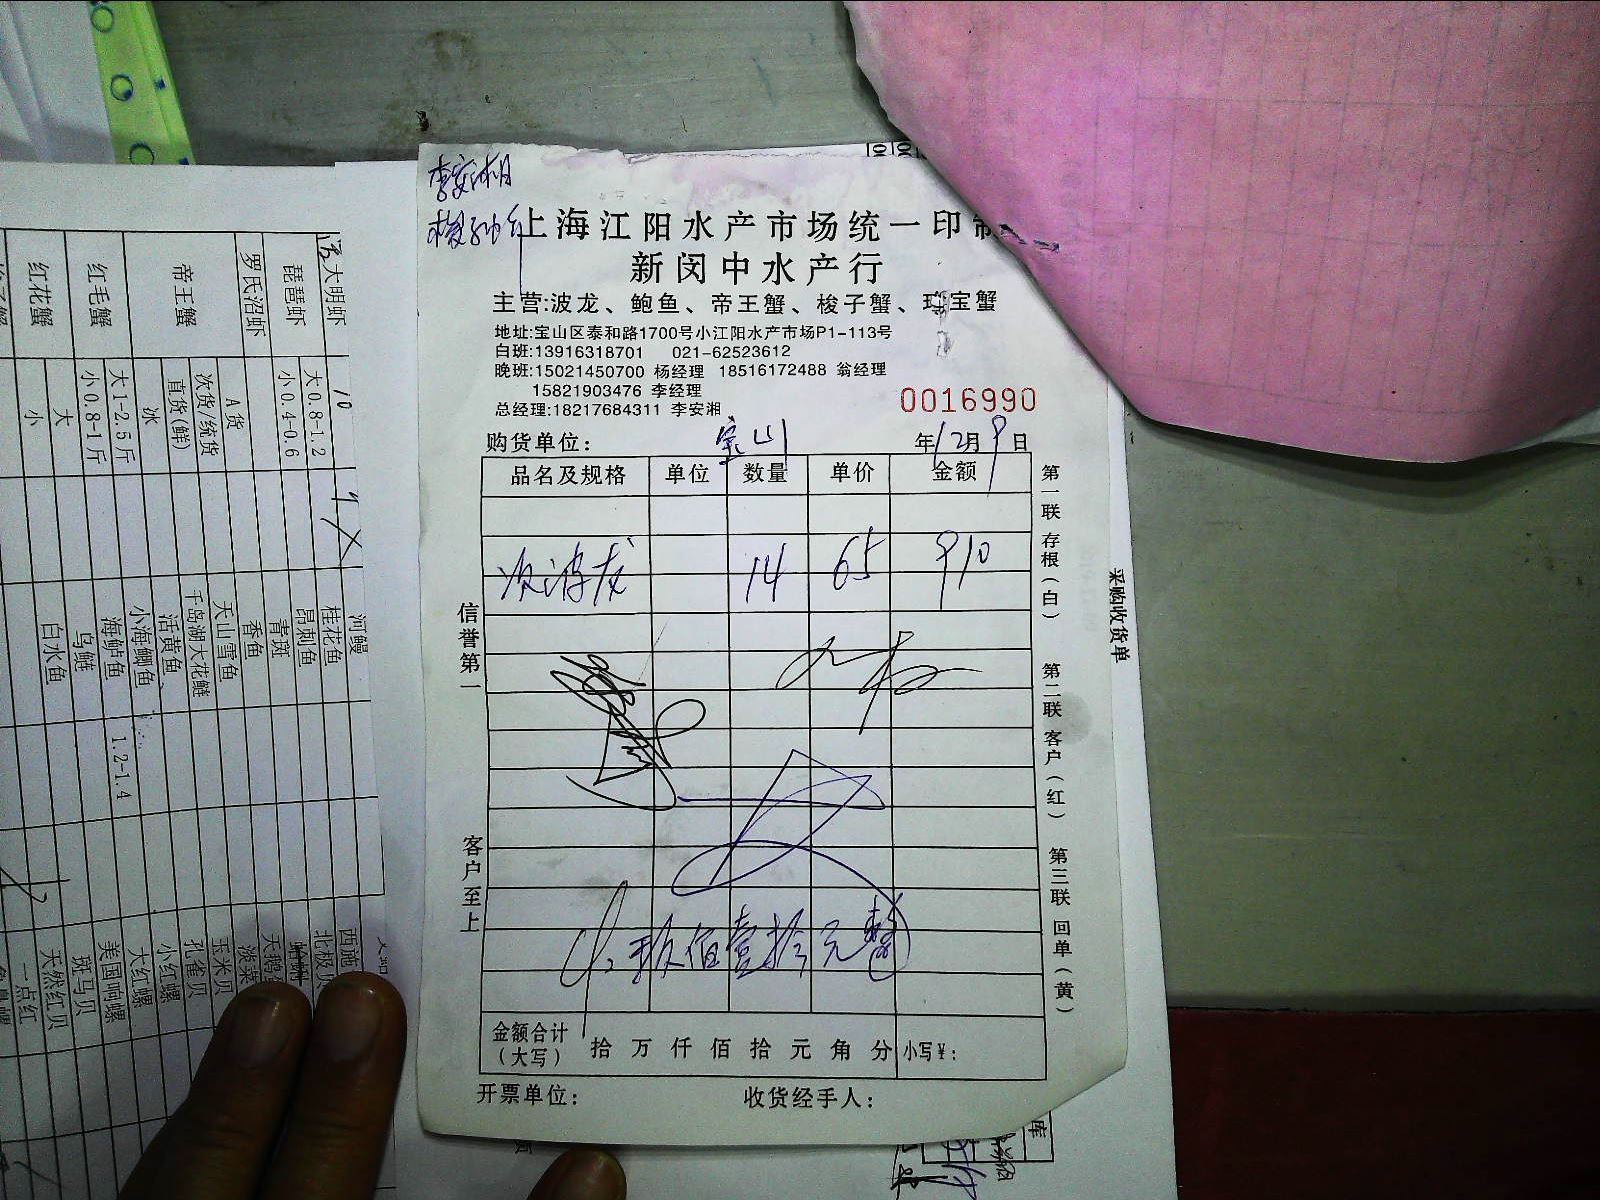 李安湘
上海江阳水产市场统一印制
新闵中水产行
主营:波龙、鲍鱼、帝王蟹、梭子蟹、珍宝蟹
地址:宝山区泰和路1700号小江阳水产市场P1-113号
白班:13916318701 021-62523612
晚班:15021450700 杨经理 18516172488 翁经理
15821903476 李经理
总经理:18217684311 李安湘
0016990
购货单位: 宝山 年12月9日
品名及规格 单位 数量 单价 金额
次波龙 14 65 910
玖佰壹拾元整
金额合计(大写) 拾 万 仟 佰 拾 元 角 分 小写¥:
开票单位: 收货经手人:
信誉第一
客户至上
第一联 存根(白)
第二联 客户(红)
第三联 回单(黄)
采购收货单
大明虾
琵琶虾 大0.8-1.2
小0.4-0.6
罗氏沼虾
帝王蟹 A货
次货/统货
直货(鲜)
冰
红毛蟹 大1-2.5斤
小0.8-1斤
红花蟹 大
小
河鳗
桂花鱼
昂刺鱼
青斑
香鱼
天山雪鱼
千岛湖大花鲢
活黄鱼、
小海鲫鱼
海鲈鱼 1.2-1.4
乌鲢
白水鱼
西施
北极贝
天鹅
淡菜
玉米贝
孔雀贝
小红螺
大红螺
美国响螺
斑马贝
天然红贝
一点红
库